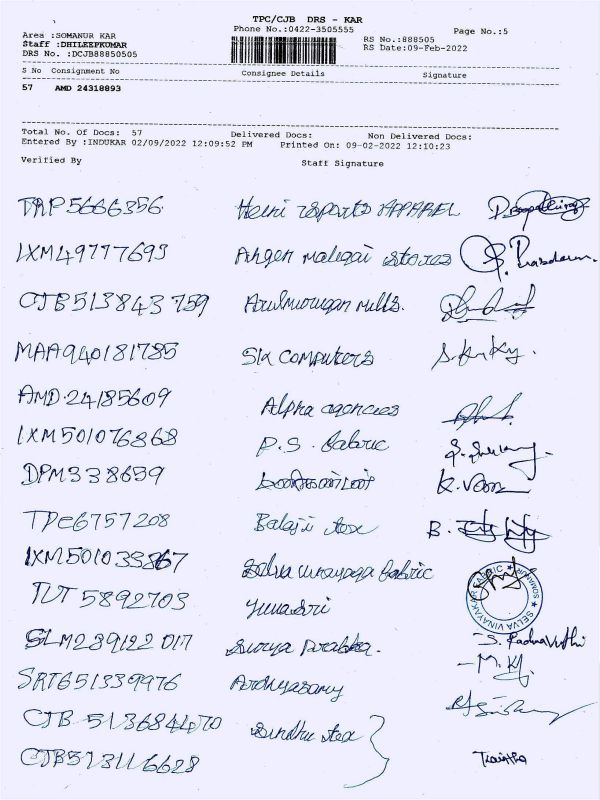 TPC/CJB DRS - KAR
Phone No.:0422-3505555
Page No.:5
Area :SOMANUR KAR
RS No.:888505
Staff :DHILEEPKUMAR
RS Date:09-Feb-2022
DRS No. :DCJB88850505
S No Consignment No Consignee Details Signature
57 AMD 24318893
Total No. Of Docs: 57 Delivered Docs: Non Delivered Docs:
Entered By :INDUKAR 02/09/2022 12:09:52 PM Printed On: 09-02-2022 12:10:23
Verified By Staff Signature
TRP5666356 APPAREL
IXM49777693 Angen maligai stores
CJB513843759 Arulmurugan mills.
MAA940181785 SLK computers S.
AMD.24185609 Alpha agencies
IXM501076868 P.S. Fabric
DPM338659 K.
TPC6757208 Balaji tex B.
IXM501033867 Selva vinayaga Fabric
SELVA VINAYAKAR FABRIC ★ SOMANUR ★
TUT 5892703 Yuvasri
SLM289122017 Surya Prabha. S.
SRT651339976 M.
CJB 513684470 Sindhu tex
CJB573116628